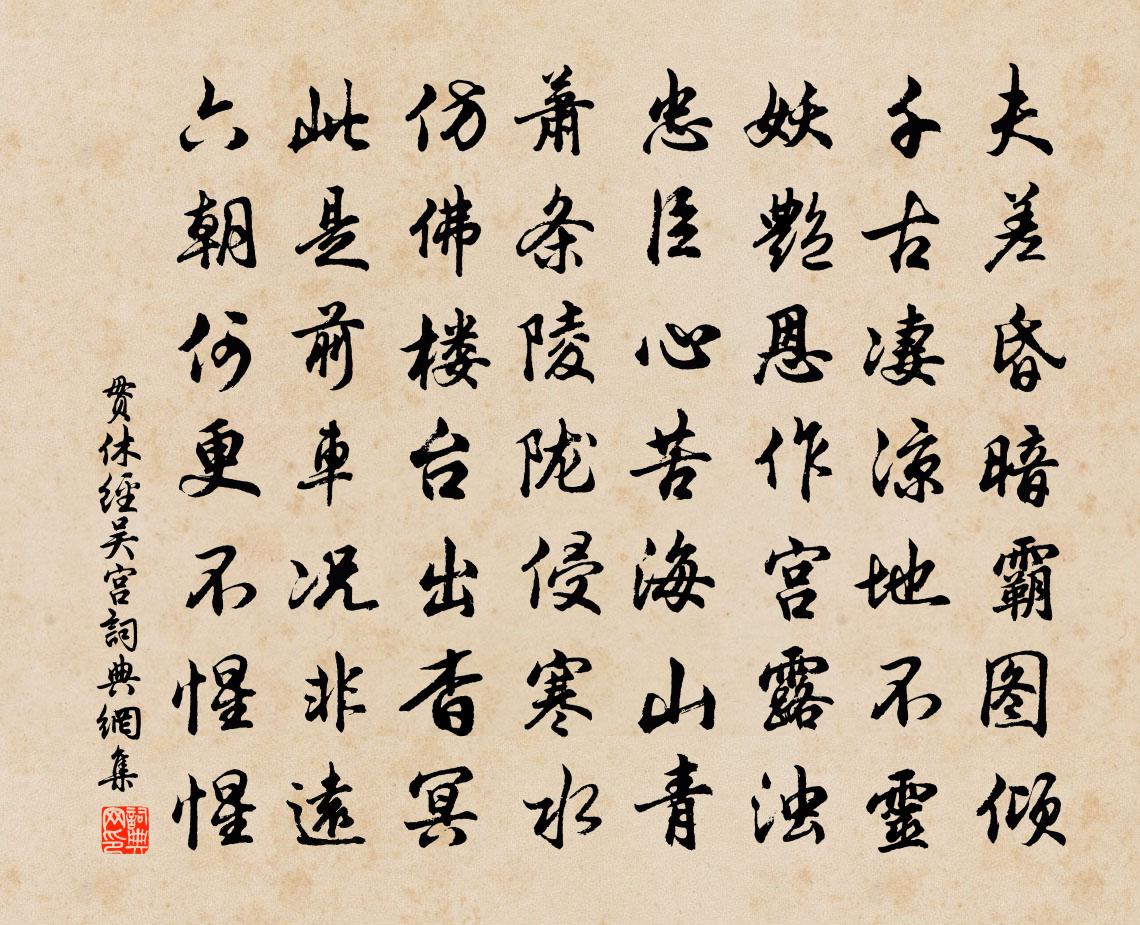 夫差昏暗霸图倾
千古凄凉地不靈
妖艷恩作宫露浊
忠臣心苦海山青
萧条陵陇侵寒水
仿佛楼台出杳冥
此是前車况非遠
六朝何更不惺惺
贯休經吴宫詞典網集
詞典网印